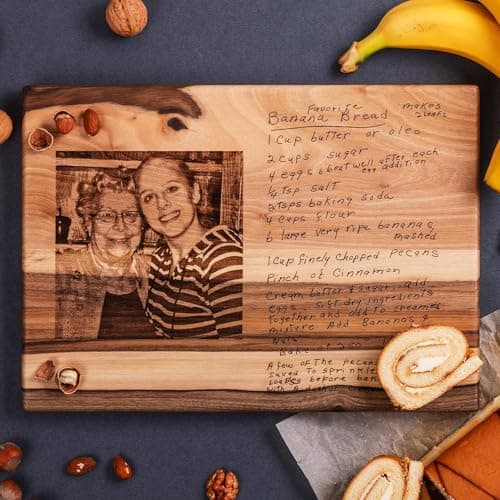 Favorite makes
Banana Bread 2 loafs
1 Cup butter or oleo
2 cups sugar
4 eggs & beat well after each
egg addition
1/4 tsp salt
2 tsps baking soda
4 cups flour
6 large very ripe bananas
mashed
1 cup finely chopped pecans
Pinch of Cinnamon
Cream butter & sugar, add
eggs. Sift dry ingredients
together and add to creamed
mixture. Add Bananas &
Nuts
Bake at
A few of the pecans
saved to sprinkle
loafs before bak
with a